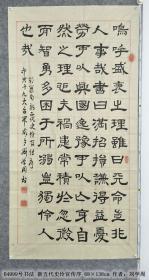 嗚呼盛衰之理雖曰天命豈非
人事哉書曰滿招損謙得益憂
勞可以興國逸豫可以亡身自
然之理也夫禍患常積於忽微
而智勇多困於所溺豈獨伶人
也哉
04999号书法 新五代史伶官传序 68×138cm 作者：刘学周